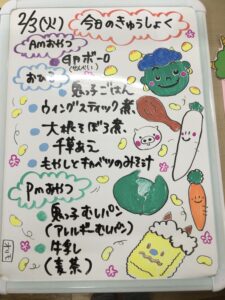 2/3(火) 今日のきゅうしょく
Amおやつ
卵ボーロ
(せんべい)
おひる
鬼っ子ごはん
ウイングスティック煮
大根そぼろ煮
千草あえ
もやしとキャベツのみそ汁
Pmおやつ
鬼っ子むしパン
(アレルギーむしパン)
牛乳
(麦茶)